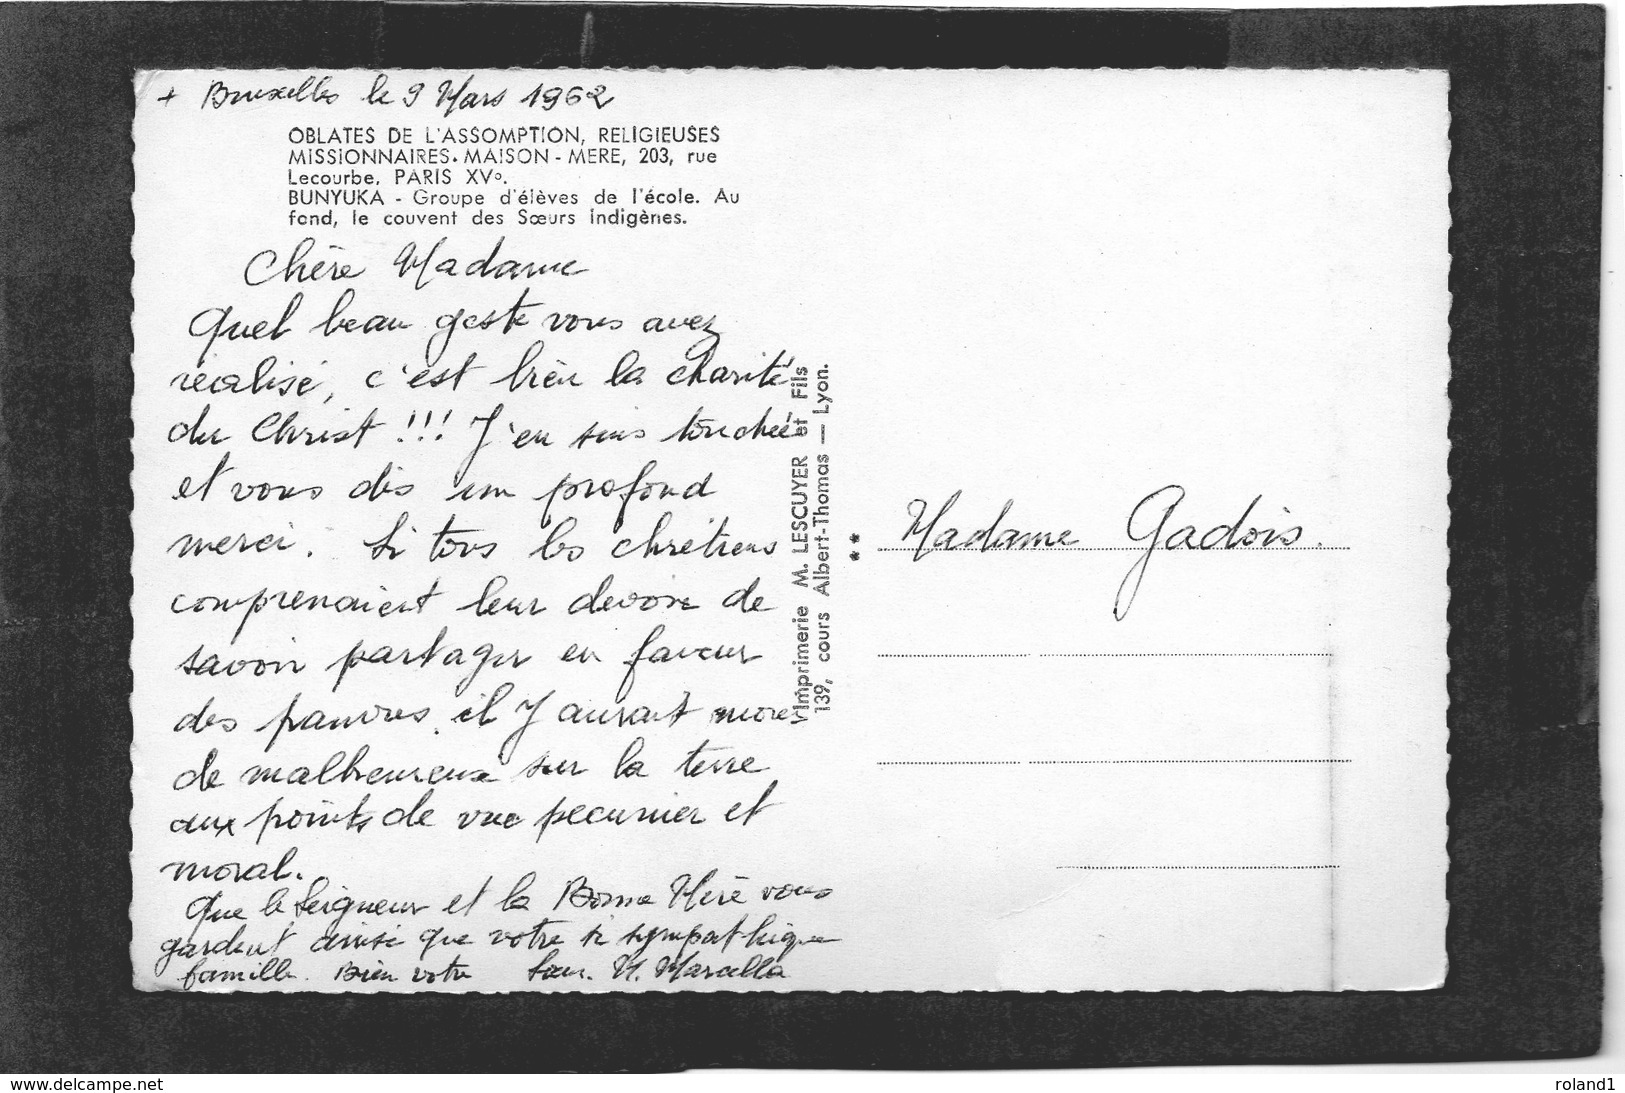 + Bruxelles le 9 Mars 1962
OBLATES DE L'ASSOMPTION, RELIGIEUSES
MISSIONNAIRES. MAISON - MERE, 203, rue
Lecourbe, PARIS XVo.
BUNYUKA - Groupe d'élèves de l'école. Au
fond, le couvent des Sœurs indigènes.
Chère Madame
Quel beau geste vous avez
réalisé, c'est bien la charité
du Christ !!! J'en suis touchée
et vous dis un profond
merci. Si tous les chrétiens
comprenaient leur devoir de
savoir partager en faveur
des pauvres, il y aurait moins
de malheureux sur la terre
aux points de vue pecunier et
moral.
Que le Seigneur et la Bonne Mère vous
gardent ainsi que votre si sympathique
famille. Bien votre Sœur. M. Marcella
Imprimerie M. LESCUYER et Fils
139, cours Albert-Thomas — Lyon.
**
Madame Gadois.
www.delcampe.net
roland1